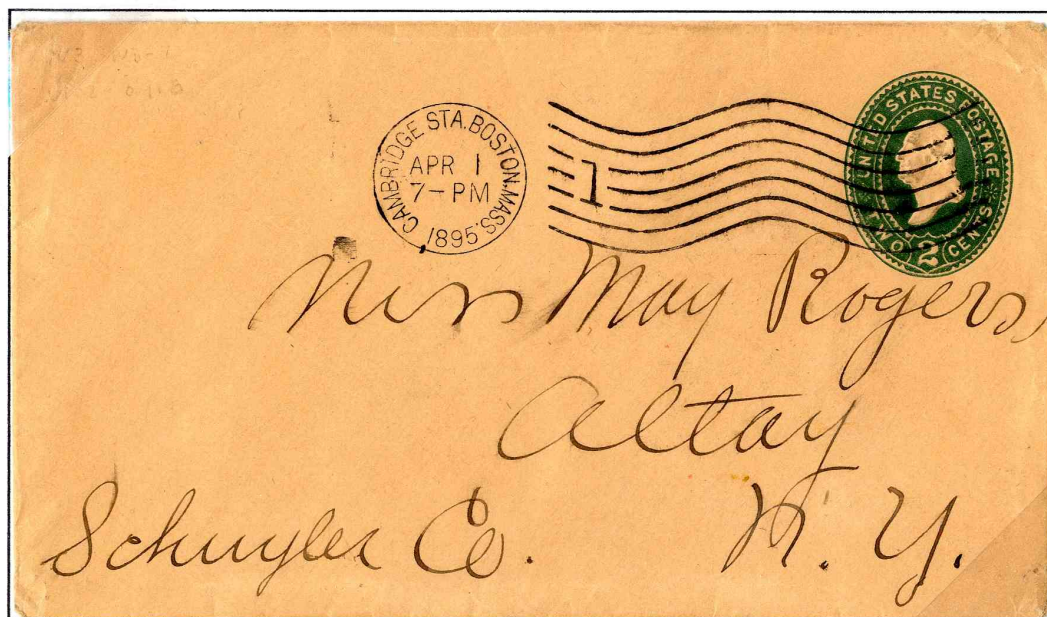 CAMBRIDGE STA. BOSTON. MASS.
APR 1
7-PM
1895.
1
UNITED STATES POSTAGE
TWO 2 CENTS
Miss May Rogers,
Altay
Schuyler Co. N. Y.